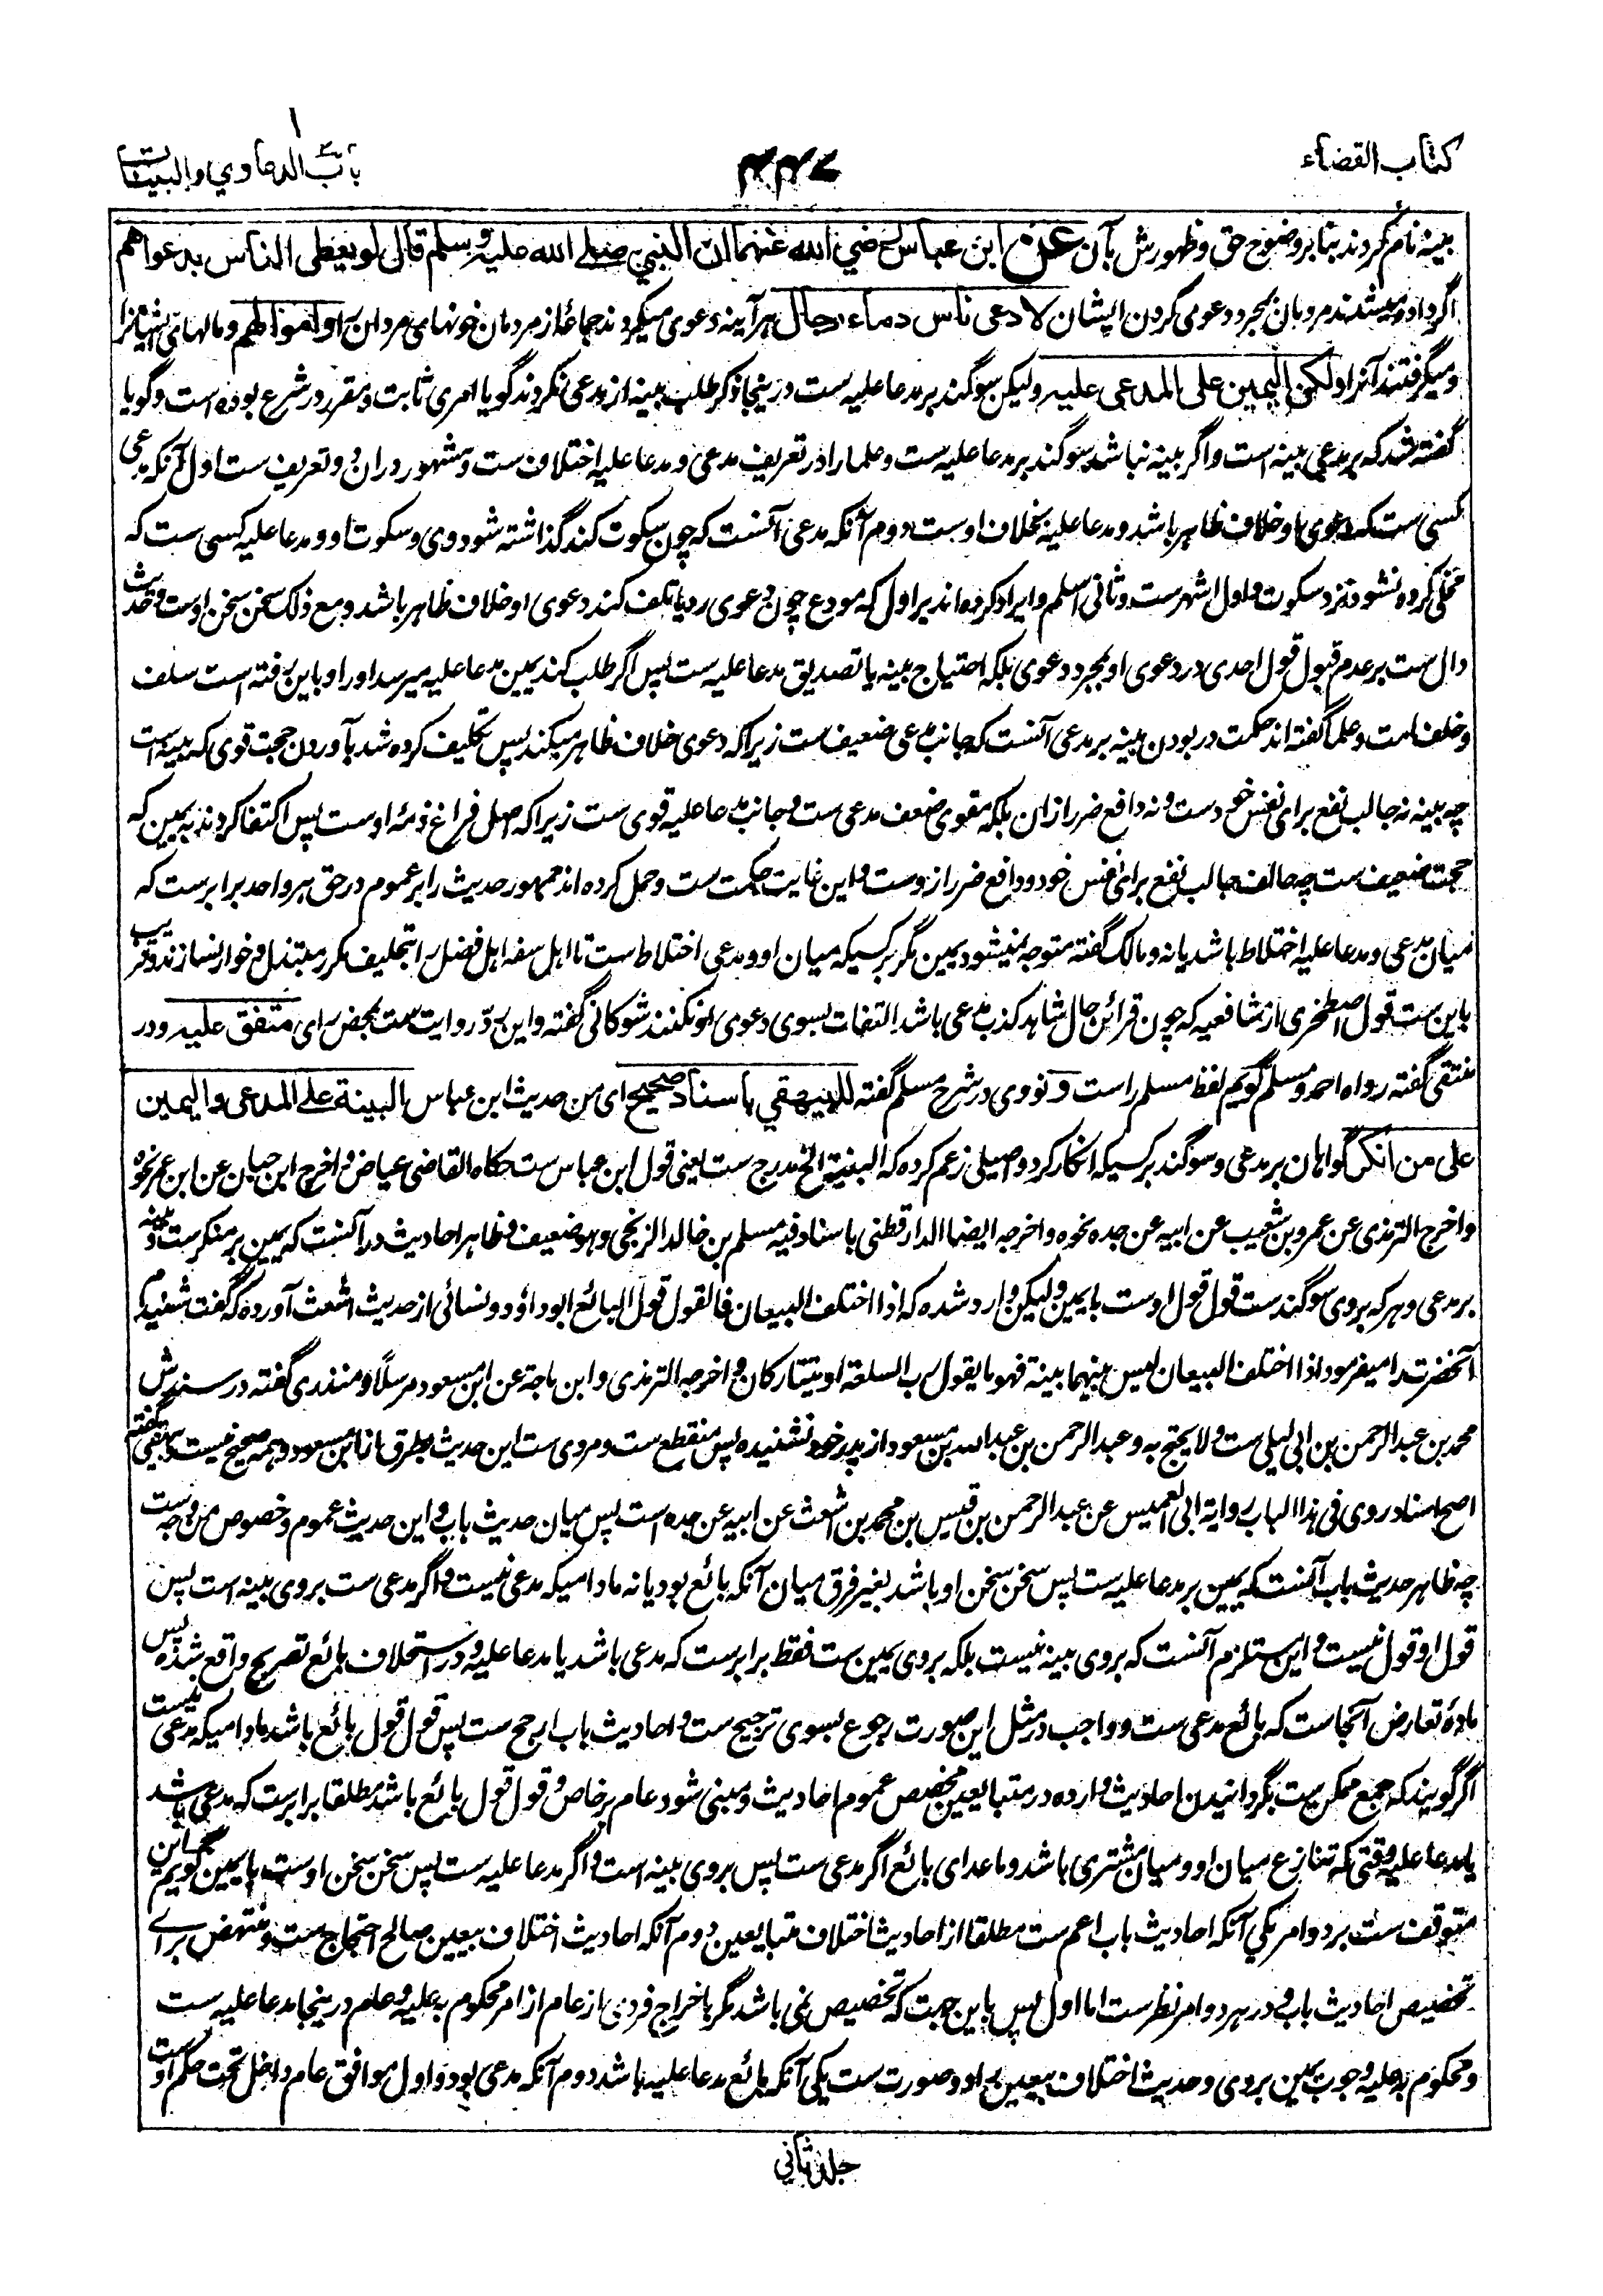 كتاب القضاء
باب الدعاوي والبينات
بینه نام کردند بنا بر وضوح حق و ظهورش بآن عن ابن عباس رضي الله عنهما ان النبي صلى الله عليه وسلم قال لو يعطى الناس بدعواهم
اگر داده میشدند مردمان بمجرد دعوی کردن ایشان لادعى ناس دماء رجال هرآینه دعوی میکردند جماعه از مردمان خونهای مردان را واموالهم و مالهای ایشانرا
و میگرفتند آنرا ولكن اليمين على المدعى عليه ولیکن سوگند بر مدعا علیه ست درینجا ذکر طلب بینه از مدعی نکردند گویا امری ثابت و مقرر در شرع بوده است و گویا
گفته شد که بر مدعی بینه است و اگر بینه نباشد سوگند بر مدعا علیه ست و علما را در تعریف مدعی و مدعا علیه اختلاف ست و مشهور دران دو تعریف ست اول آنکه مدعی
کسی ست که دعوی او خلاف ظاهر باشد و مدعا علیه بخلاف اوست دوم آنکه مدعی آنست که چون سکوت کند گذاشته شود وی و سکوت او و مدعا علیه کسی ست که
مخلی کرده نشود نزد سکوت و اول اشهرست و ثانی اسلم و ایراد کرده اند بر اول که مودع چون دعوی رد یا تلف کند دعوی او خلاف ظاهر باشد و مع ذلک سخن سخن اوست و حدیث
دال ست بر عدم قبول قول احدی در دعوی او بمجرد دعوی بلکه احتیاج بینه یا تصدیق مدعا علیه ست پس اگر طلب کند یمین مدعا علیه میرسد او را و باین رفته است سلف
و خلف امت و علما گفته اند حکمت در بودن بینه بر مدعی آنست که جانب مدعی ضعیف ست زیرا که دعوی خلاف ظاهر میکند پس تکلیف کرده شد بآوردن حجت قوی که بینه است
چه بینه نه جالب نفع برای نفس خود ست و نه دافع ضرر ازان بلکه مقوی ضعف مدعی ست و جانب مدعا علیه قوی ست زیرا که اصل فراغ ذمه اوست پس اکتفا کردند به یمین که
حجت ضعیف ست چه حالف جالب نفع برای نفس خود و دافع ضرر ازوست و این غایت حکمت ست و حمل کرده اند جمهور حدیث را بر عموم در حق هر واحد برابرست که
میان مدعی و مدعا علیه اختلاط باشد یا نه و مالک گفته متوجه نمیشود یمین مگر بر کسیکه میان او و مدعی اختلاط ست تا اهل سفه اهل فضل را بتحلیف مکرر مبتذل و خوار نسازند و قریب
باین ست قول اصطخری از شافعیه که چون قرائن حال شاهد کذب مدعی باشد التفات بسوی دعوی او نکنند شوکانی گفته و این رد روایت ست بمحض رای متفق عليه و در
منتقی گفته رواه احمد و مسلم گویم لفظ مسلم راست و نووی در شرح مسلم گفته للبيهقي باسناد صحيح ای من حدیث ابن عباس البينة على المدعى واليمين
على من انكر گواهان بر مدعی و سوگند بر کسیکه انکار کرد و اصیلی زعم کرده که البینة الخ مدرج ست یعنی قول ابن عباس ست حکاه القاضی عیاض و اخرج ابن حبان عن ابن عمر نحوه
و اخرج الترمذی عن عمرو بن شعیب عن ابیه عن جده نحوه و اخرجه ایضا الدارقطنی باسناد فیه مسلم بن خالد الزنجی و هو ضعیف و ظاهر احادیث درآنست که یمین بر منکر ست و بینه
بر مدعی و هر که بروی سوگند ست قول قول اوست با یمین ولیکن وارد شده که اذا اختلف البیعان فالقول قول البائع ابو داؤد و نسائی از حدیث اشعث آورده که گفت شنیدم
آنحضرت را میفرمود اذا اختلف البیعان لیس بینهما بینة فهو ما یقول رب السلعة او یتتارکان و اخرجه الترمذی و ابن ماجة عن ابن مسعود مرسلًا و منذری گفته در سندش
محمد بن عبدالرحمن بن ابی لیلی ست و لا یحتج به و عبدالرحمن بن عبدالله بن مسعود از پدر خود نشنیده پس منقطع ست و مروی ست این حدیث بطرق از ابن مسعود و همه صحیح نیست و بیهقی گفته
اصح اسناد روی فی هذا الباب روایة ابی العمیس عن عبدالرحمن بن قیس بن محمد بن اشعث عن ابیه عن جده است پس میان حدیث باب و این حدیث عموم و خصوص من وجه ست
چه ظاهر حدیث باب آنست که یمین بر مدعا علیه ست پس سخن سخن او باشد بغیر فرق میان آنکه بائع بود یا نه مادامیکه مدعی نیست و اگر مدعی ست بروی بینه است پس
قول او قول نیست و این مستلزم آنست که بروی بینه نیست بلکه بروی یمین ست فقط برابرست که مدعی باشد یا مدعا علیه و در استحلاف بائع تصریح واقع شده پس
ماده تعارض آنجاست که بائع مدعی ست و واجب در مثل این صورت رجوع بسوی ترجیح ست و احادیث باب ارجح ست پس قول قول بائع باشد مادامیکه مدعی نیست
اگر گویند که جمع ممکن ست بگردانیدن احادیث وارده در متبایعین مخصص عموم احادیث و مبنی شود عام بر خاص و قول قول بائع باشد مطلقا برابرست که مدعی باشد
یا مدعا علیه وقتی که تنازع میان او و میان مشتری باشد و ماعدای بائع اگر مدعی ست پس بروی بینه است و اگر مدعا علیه ست پس سخن سخن اوست با یمین گویم این
متوقف ست بر دو امر یکی آنکه احادیث باب اعم ست مطلقا از احادیث اختلاف متبایعین دوم آنکه احادیث اختلاف بیعین صالح احتجاج ست و منتهض برای
تخصیص احادیث باب و در هر دو امر نظرست اما اول پس باین جهت که تخصیص نمی باشد مگر باخراج فردی از عام از امر محکوم به علیه و عام درینجا مدعا علیه ست
و محکوم به علیه وجوب یمین بروی و حدیث اختلاف بیعین را دو صورت ست یکی آنکه بائع مدعا علیه باشد دوم آنکه مدعی بود و اول موافق عام داخل تحت حکم اوست
جلد ثاني